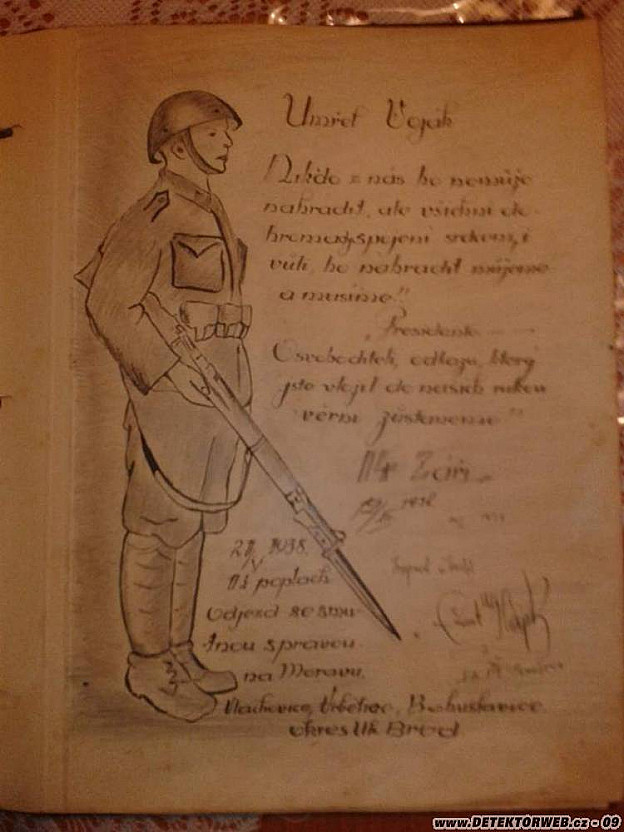 Umřel Voják
Nikdo z nás ho nemůže
nahradit, ale všichni do-
hromady spojeni srdcem, i
vůlí, ho nahradit můžeme
a musíme"
"Presidente
Osvoboditeli, odkazu, který
jste vložil do našich rukou
věrni zůstaneme"
14 Září
21/V 1938.
poplach
Odjezd se smu-
tnou zprávou
na Moravu.
Vlachovice, Vrbětice, Bohuslavice
okres Uh. Brod
www.DETEKTORWEB.cz - 09